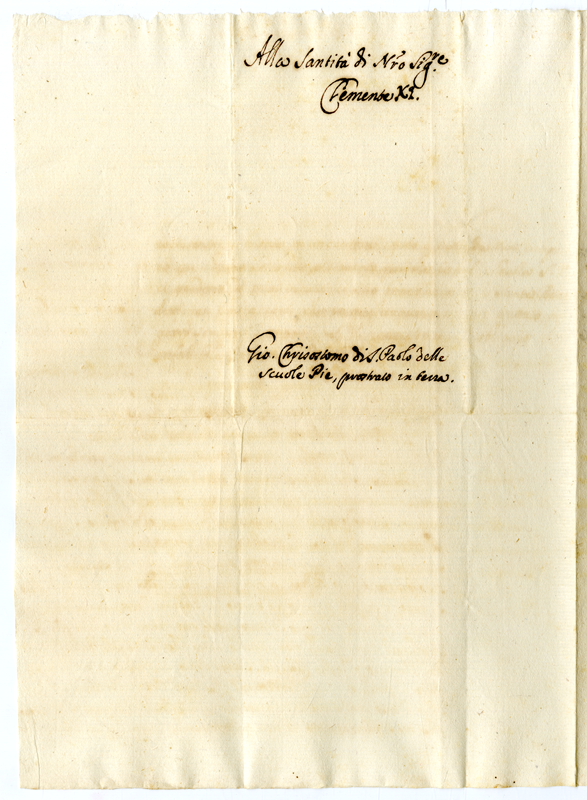 Alla Santità di Nro Sigre
Clemente XI.
Gio. Chrisostomo di S. Paolo delle
Scuole Pie, prostrato in terra.